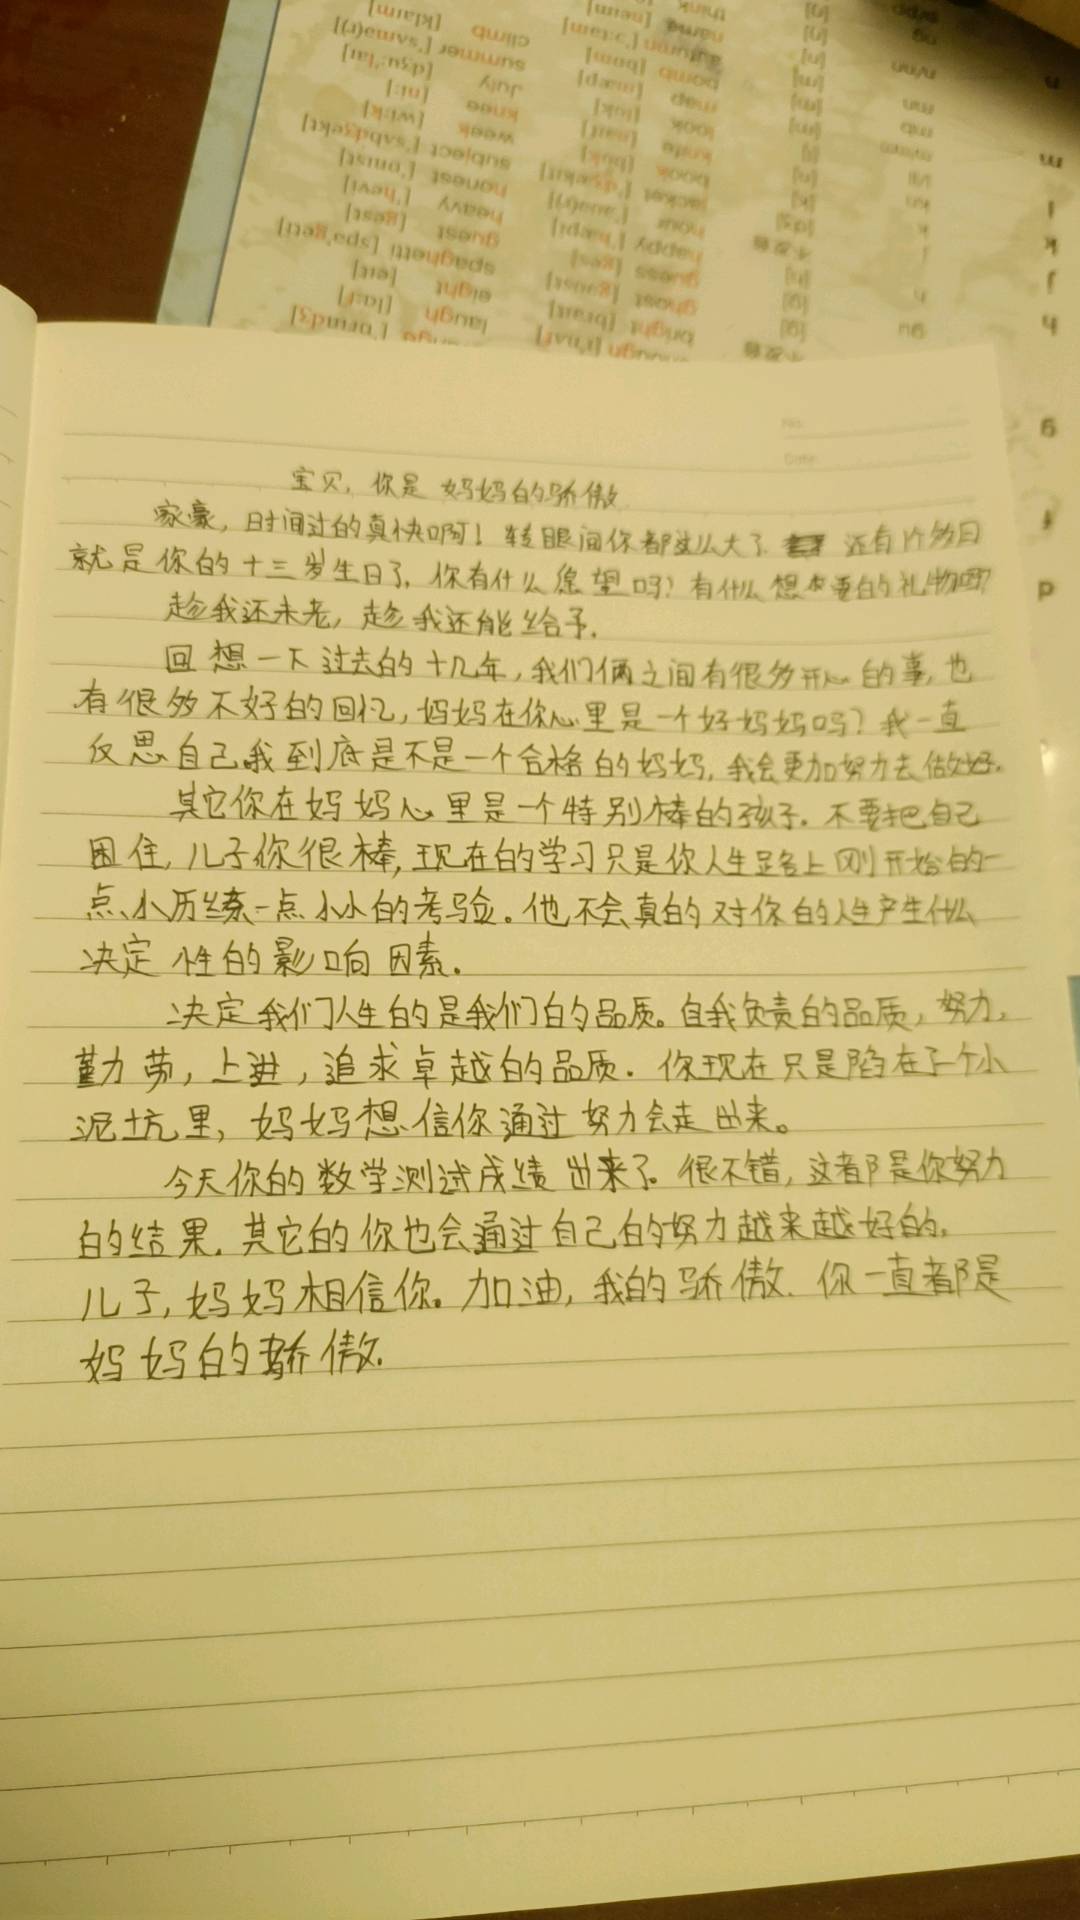 宝贝，你是妈妈的骄傲
家豪，时间过的真快啊！转眼间你都这么大了 还有个多月
就是你的十三岁生日了，你有什么愿望吗？有什么想要的礼物吗？
趁我还未老，趁我还能给予.
回想一下过去的十几年，我们俩之间有很多开心的事，也
有很多不好的回忆，妈妈在你心里是一个好妈妈吗？我一直
反思自己我到底是不是一个合格的妈妈，我会更加努力去做好.
其它你在妈妈心里是一个特别棒的孩子. 不要把自己
困住，儿子你很棒，现在的学习只是你人生路上刚开始的一
点小历练一点小小的考验。他不会真的对你的人生产生什么
决定性的影响因素.
决定我们人生的是我们的品质。自我负责的品质，努力，
勤劳，上进，追求卓越的品质. 你现在只是陷在了一个小
泥坑里，妈妈想信你通过努力会走出来。
今天你的数学测试成绩出来了。很不错，这都是你努力
的结果. 其它的你也会通过自己的努力越来越好的.
儿子，妈妈相信你。加油，我的骄傲. 你一直都是
妈妈的骄傲.
No.
Date
climb [klaim]
summer ['sʌmə(r)]
July [dʒu:'lai]
knee [ni:]
week [wi:k]
subject ['sʌbdʒekt]
honest ['ɒnist]
heavy ['hevi]
guest [gest]
spaghetti [spə'geti]
eight [eit]
laugh [la:f]
name [neim]
autumn ['ɔ:təm]
bomb [bɒm]
map [mæp]
look [luk]
knife [naif]
book [buk]
jacket ['dʒækit]
hour ['auə(r)]
happy ['hæpi]
guess [ges]
ghost [gəust]
bright [brait]
think